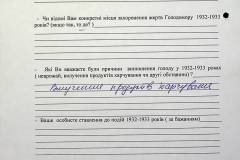 - Чи відомі Вам конкретні місця захоронення жертв Голодомору 1932-1933
років? (якщо так, то де?)
- Які Ви вважаєте були причини виникнення голоду у 1932-1933 роках
( неврожай, вилучення продуктів харчування чи другі обставини) ?
Вилучення продуктів харчування
- Ваше особисте ставлення до подій 1932-1933 років ( за бажанням)